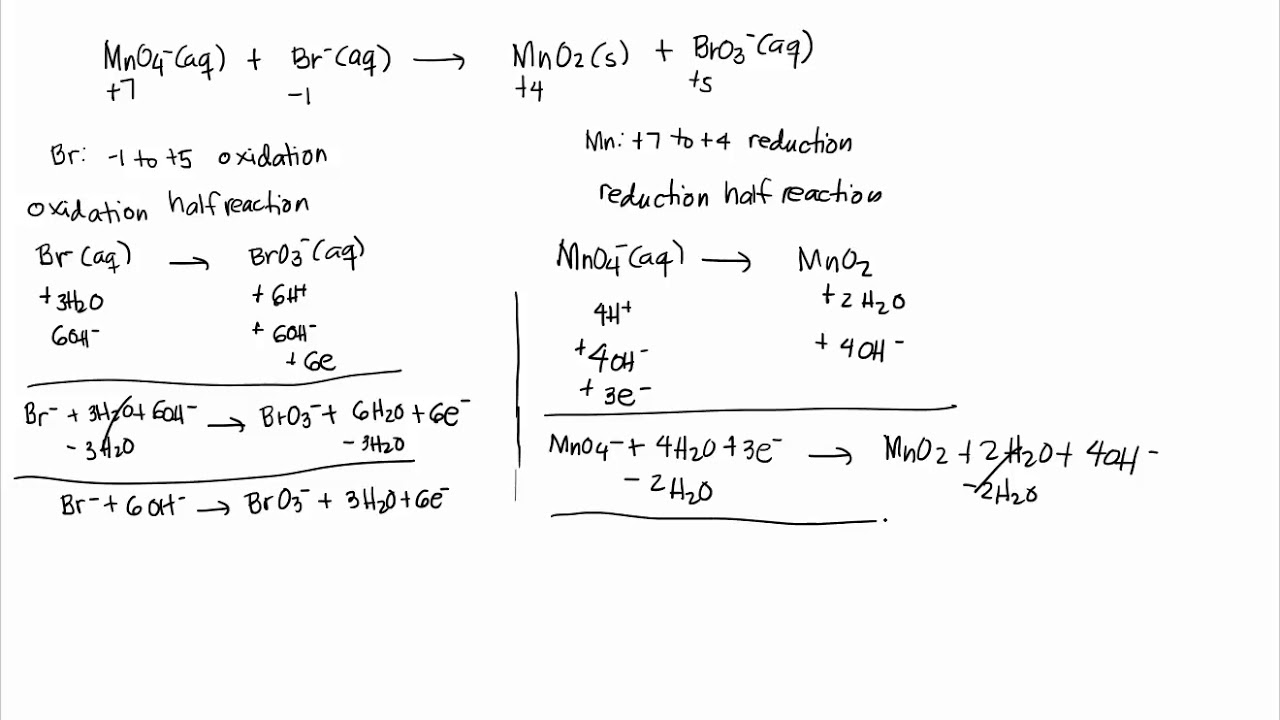 MnO4⁻(aq) + Br⁻(aq) → MnO2(s) + BrO3⁻(aq)
+7 -1 +4 +5
Br: -1 to +5 oxidation
oxidation half reaction
Br⁻(aq) → BrO3⁻(aq)
+ 3H2O + 6H⁺
6OH⁻ + 6OH⁻
+ 6e
Br⁻ + 3H2O + 6OH⁻ → BrO3⁻ + 6H2O + 6e⁻
- 3H2O - 3H2O
Br⁻ + 6OH⁻ → BrO3⁻ + 3H2O + 6e⁻
Mn: +7 to +4 reduction
reduction half reaction
MnO4⁻(aq) → MnO2
4H⁺ + 2H2O
+ 4OH⁻ + 4OH⁻
+ 3e⁻
MnO4⁻ + 4H2O + 3e⁻ → MnO2 + 2H2O + 4OH⁻
- 2H2O - 2H2O